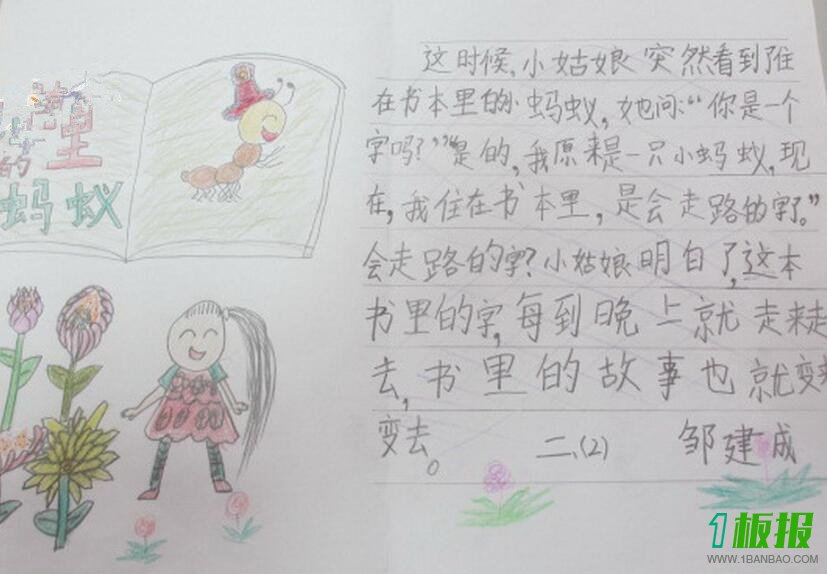 书里
的
蚂蚁
这时候,小姑娘突然看到了住
在书本里的小蚂蚁,她问:“你是一个
字吗?”“是的,我原来是一只小蚂蚁,现
在,我住在书本里,是会走路的字。”
会走路的字?小姑娘明白了,这本
书里的字,每到晚上就走来走
去,书里的故事也就变来
变去。 二、(2) 邹建成
1板报
WWW.1BANBAO.COM